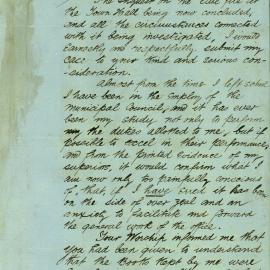 The Inquest on the late fire at
the Town Hall being now concluded,
and all the circumstances connected
with it being investigated, I would
earnestly and respectfully submit my
case to your kind and serious con-
sideration.
Almost from the time I left school
I have been in the employ of the
Municipal Council, and it has ever
been my study not only to perform
my the duties allotted to me, but if
possible to excel in their performances
and from the printed evidence of my
superior, it would confirm what I
am now only too painfully conscious
of, that, if I have erred it has been
on the side of over zeal and an
anxiety to facilitate and forward
the general work of the office.
Your Worship informed me that
you had been given to understand
that the Books kept by me were